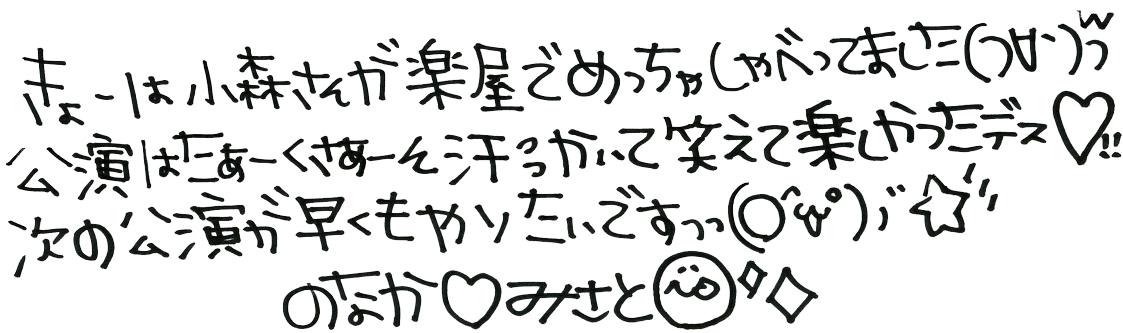 きょーは小森さんが楽屋でめっちゃしゃべってました(つ∀`)つw
公演はたぁーくさぁーん汗っっかいて笑えて楽しかったデス♡!!
次の公演が早くもやりたいですっっ(○^ω°)ﾉ゙☆
のなか♡みさと